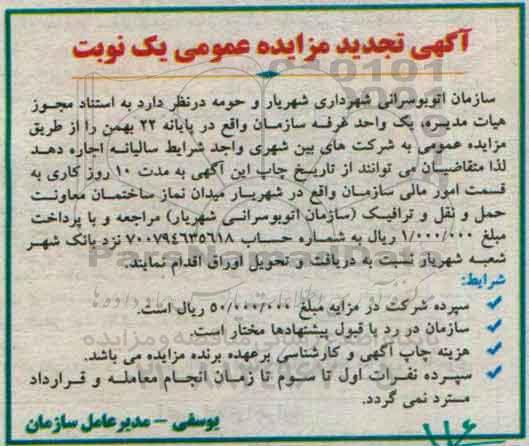 آگهی تجدید مزایده عمومی یک نوبت
سازمان اتوبوسرانی شهرداری شهریار و حومه درنظر دارد به استناد مجوز
هیات مدیره، یک واحد غرفه سازمان واقع در پایانه ۲۲ بهمن را از طریق
مزایده عمومی به شرکت های بین شهری واجد شرایط سالیانه اجاره دهد
لذا متقاضیان می توانند از تاریخ چاپ این آگهی به مدت ۱۰ روز کاری به
قسمت امور مالی سازمان واقع در شهریار میدان نماز ساختمان معاونت
حمل و نقل و ترافیک (سازمان اتوبوسرانی شهریار) مراجعه و با پرداخت
مبلغ ۱/۰۰۰/۰۰۰ ریال به شماره حساب ۷۰۰۷۹۴۶۳۵۶۱۸ نزد بانک شهر
شعبه شهریار نسبت به دریافت و تحویل اوراق اقدام نمایند.
شرایط:
سپرده شرکت در مزایه مبلغ ۵۰/۰۰۰/۰۰۰ ریال است.
سازمان در رد یا قبول پیشنهادها مختار است.
هزینه چاپ آگهی و کارشناسی برعهده برنده مزایده می باشد.
سپرده نفرات اول تا سوم تا زمان انجام معامله و قرارداد
مسترد نمی گردد.
یوسفی - مدیرعامل سازمان
۱۱۶